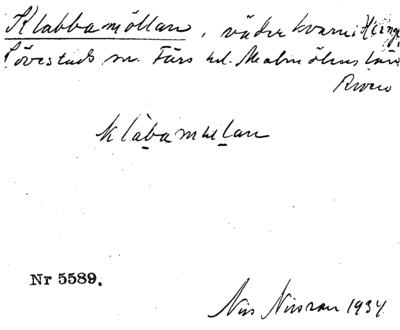 Klabbamöllan, väderkvarn i
Lövestads sn. Färs hd. Malmöhus län
klabamɯlan
Nr 5589.
Nils Nilsson 1934.